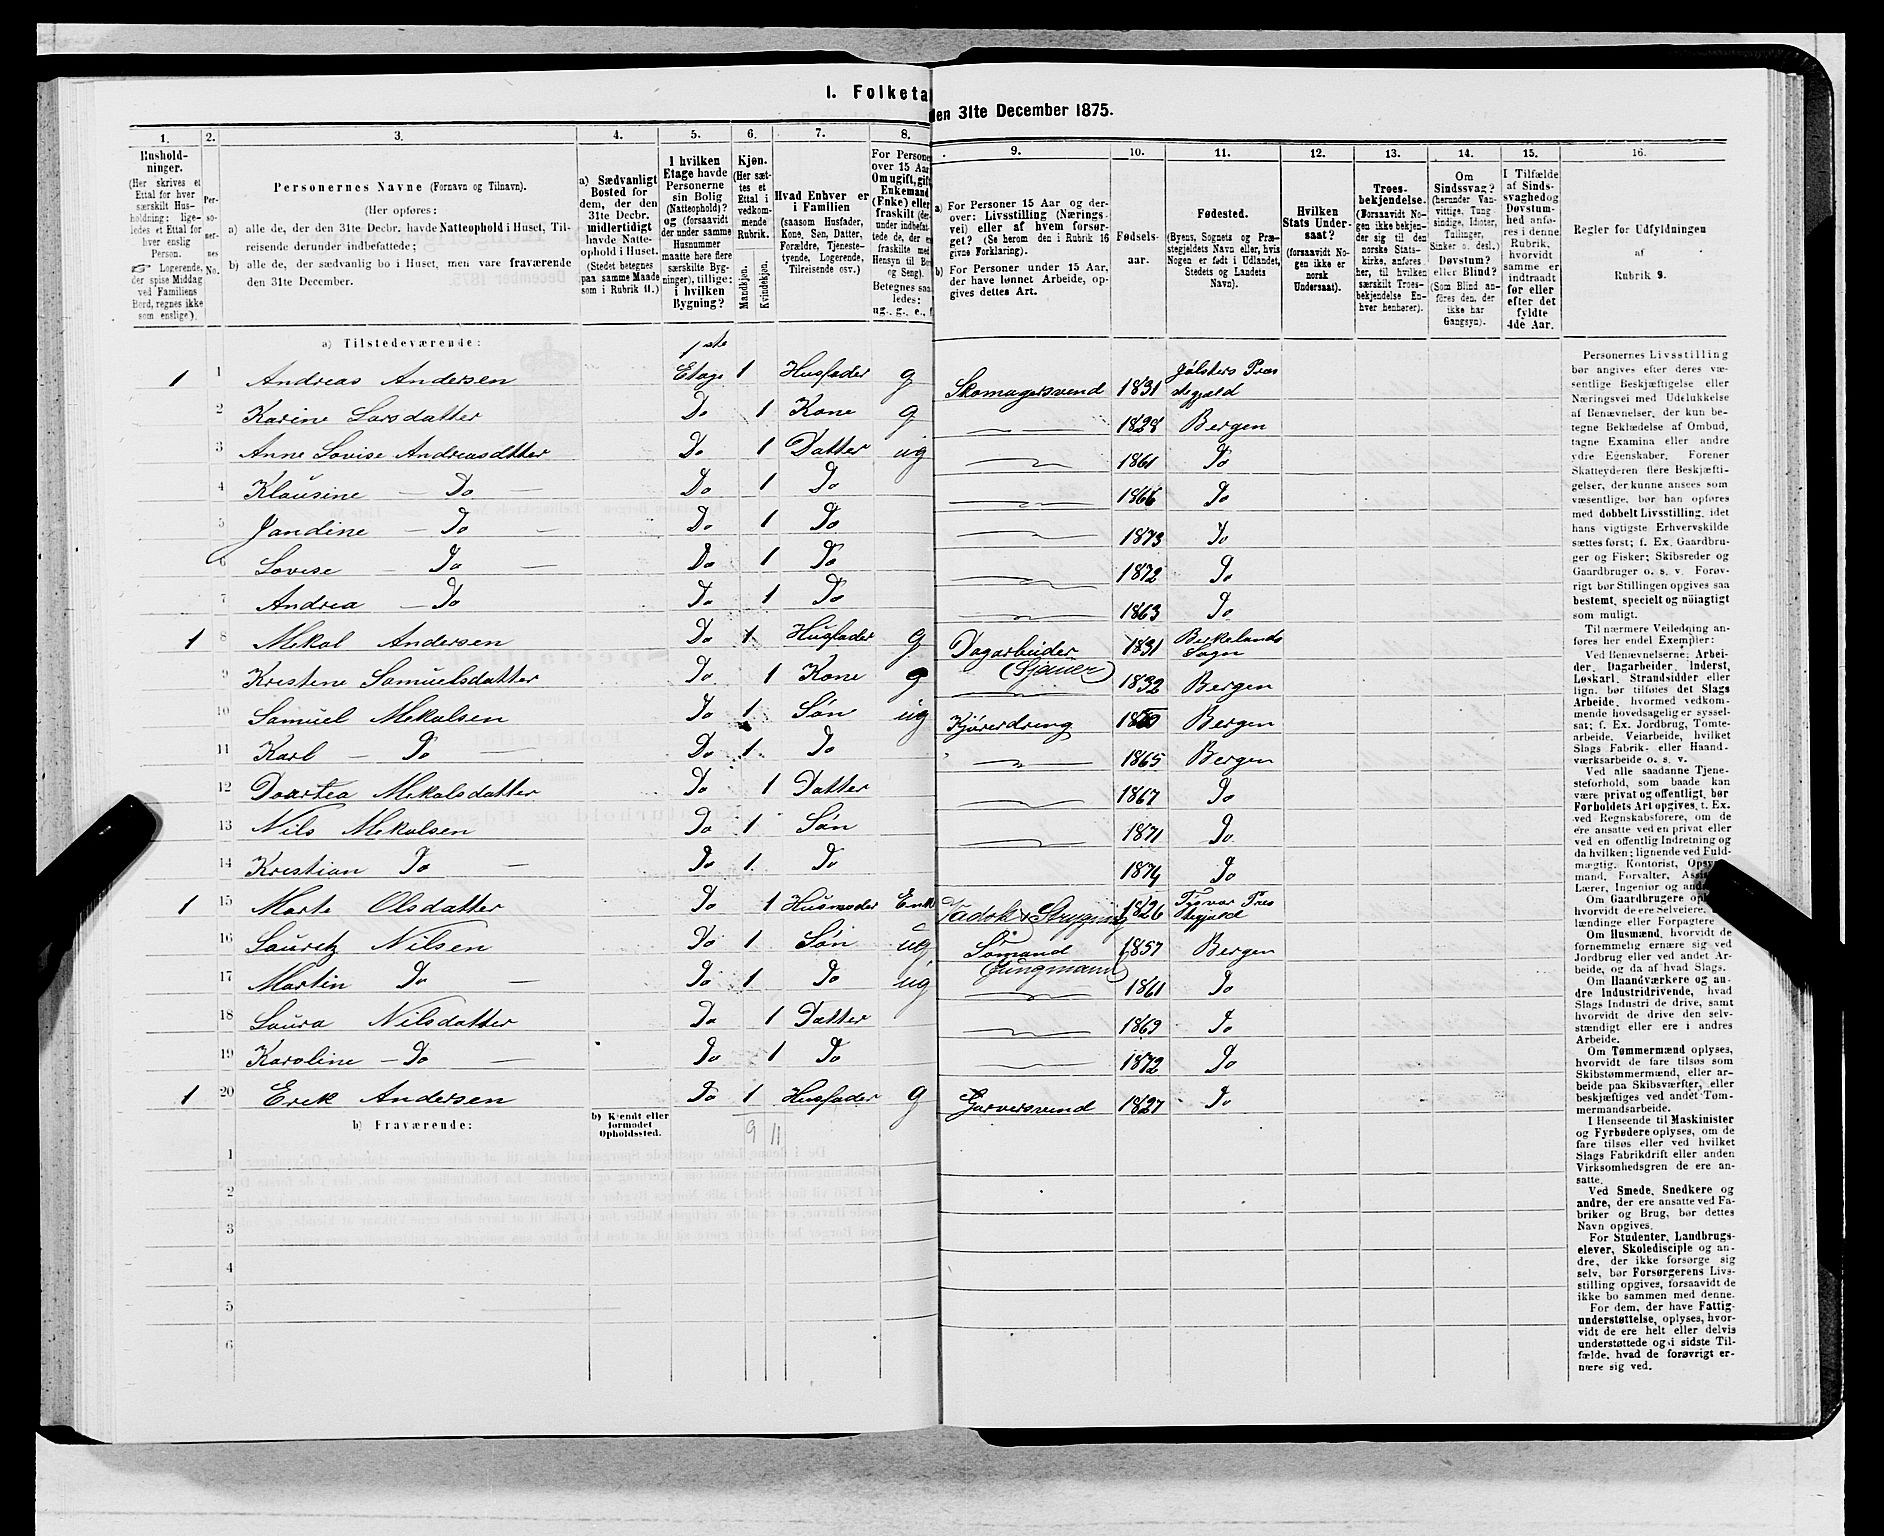 I. Folketa
den 31te December 1875.
1. 2. 3. 4. 5. 6. 7. 8. 9. 10. 11. 12. 13. 14. 15. 16.
Hushold-
ninger.
(Her skrives et
Ettal for hver
særskilt Hus-
holdning; lige-
ledes et Ettal for
hver enslig
Person.
☞ Logerende,
der spise Middag
ved Familiens
Bord, regnes ikke
som enslige).
Per-
so-
ner-
nes
No.
Personernes Navne (Fornavn og Tilnavn).
(Her opføres:
a) alle de, der den 31te Decbr. havde Natteophold i Huset, Til-
reisende derunder indbefattede;
b) alle de, der sædvanlig bo i Huset, men vare fraværende
den 31te December.
a) Sædvanligt
Bosted for
dem, der den
31te Decbr.
midlertidigt
havde Natte-
ophold i Huset.
(Stedet betegnes
paa samme Maade
som i Rubrik 11.)
I hvilken
Etage havde
Personerne
sin Bolig
(Natteophold)?
og (forsaavidt
der under samme
Husnummer
maatte høre flere
særskilte Byg-
ninger), tillige:
i hvilken
Bygning?
Kjøn.
(Her sæt-
tes et
Ettal i
vedkom-
mende
Rubrik.
Mandkjøn.
Kvindekjøn.
Hvad Enhver er
i Familien
(saasom Husfader,
Kone, Søn, Datter,
Forældre, Tjeneste-
tyende, Logerende,
Tilreisende osv.)
For Persone
over 15 Aar
Om ugift, gift
Enkemand
(Enke) eller
fraskilt (der-
under indbefat-
tede de, der er
fraskilte med
Hensyn til Bo
og Seng).
Betegnes saa-
ledes:
ug., g., e., f
a) For Personer 15 Aar og der-
over: Livsstilling (Nærings-
vei) eller af hvem forsør-
get? (Se herom den i Rubrik 16
givne Forklaring).
b) For Personer under 15 Aar,
der have lønnet Arbeide, op-
gives dettes Art.
Fødsels-
aar.
Fødested.
(Byens, Sognets og Præ-
stegjeldets Navn eller, hvis
Nogen er født i Udlandet,
Stedets og Landets
Navn).
Hvilken
Stats Under-
saat?
(forsaavidt No-
gen ikke er
norsk
Undersaat).
Troes-
bekjendelse.
(Forsaavidt No-
gen ikke bekjen-
der sig til den
norske Stats-
kirke, anføres
her, til hvilken
særskilt Troes-
bekjendelse En-
hver henhører).
Om
Sindssvag?
(herunder Van-
vittige, Tung-
sindige, Idioter,
Tullinger,
Sinker o. desl.)
Døvstum?
eller Blind?
(Som Blind an-
føres den, der
ikke har
Gangsyn).
I Tilfælde
af Sinds-
svaghed og
Døvstum-
hed anfø-
res i denne
Rubrik,
hvorvidt
samme er
indtraadt
før eller
efter det
fyldte
4de Aar.
Regler for Udfyldningen
af
Rubrik 9.
a) Tilstedeværende:
1ste
1 1 Andreas Andersen Etage 1 Husfader g Skomagersvend 1831 Jølsters Præstegjeld
2 Karine Larsdatter Do 1 Kone g 1828 Bergen
3 Anne Lovise Andreasdtter Do 1 Datter ug 1861 Do
4 Klausine — Do — Do 1 Do 1866 Do
5 Jandine — Do — Do 1 Do 1873 Do
6 Lovise — Do — Do 1 Do 1872 Do
7 Andrea — Do Do 1 Do 1863 Do
1 8 Mekal Andersen Do 1 Husfader g Dagarbeider (Sjauer) 1831 Birkelands Sogn
9 Kristene Samuelsdatter Do 1 Kone g 1832 Bergen
10 Samuel Mekalsen Do 1 Søn ug Kjøreredreng Bergen
11 Karl — Do — Do 1 Do 1865 Bergen
12 Doartea Mekalsdatter Do 1 Datter 1867 Do
13 Nils Mekalsen Do 1 Søn 1871 Do
14 Kristian Do — Do 1 Do 1874 Do
1 15 Marte Olsdatter Do 1 Husmoder Enk Strygning 1826 Tysvær
16 Lauretz Nilsen Do 1 Søn ug Sømand (Jungmand) 1857 Bergen
17 Martin Do — Do 1 Do ug 1861 Do
18 Laura Nilsdatter Do 1 Datter 1869 Do
19 Karoline — Do — Do 1 Do 1872 Do
1 20 Erek Andersen Do 1 Husfader g Garversvend 1827 Do
b) Fraværende:
b) Kjendt eller
formodet
Opholdssted.
9 11
1
2
3
4
5
6
Personernes Livsstilling
bør angives efter deres væ-
sentlige Beskjæftigelse eller
Næringsvei med Udelukkelse
af Benævnelser, der kun be-
tegne Beklædelse af Ombud,
tagne Examina eller andre
ydre Egenskaber. Forener
Skatteyderen flere Beskjæfti-
gelser, der kunne ansees som
væsentlige, bør han opføres
med dobbelt Livsstilling, idet
hans vigtigste Erhvervskilde
sættes først; f. Ex. Gaardbru-
ger og Fisker; Skibsreder og
Gaardbruger o. s. v. Forøv-
rigt bør Stillingen opgives saa
bestemt, specielt og nöiagtigt
som muligt.
Til nærmere Veiledning an-
føres her endel Exempler:
Ved Benævnelserne: Arbei-
der, Dagarbeider, Inderst,
Løskarl, Strandsidder eller
lign. bør tilføies det Slags
Arbeide, hvormed vedkom-
mende hovedsagelig er syssel-
sat; f. Ex. Jordbrug, Tomte-
arbeide, Veiarbeide, hvilket
Slags Fabrik- eller Haand-
værksarbeide o. s. v.
Ved alle saadanne Tjene-
steforhold, som baade kan
være privat og offentligt, bør
Forholdets Art opgives, t. Ex.
ved Regnskabsførere, om de
ere ansatte ved en privat eller
ved en offentlig Indretning og
da hvilken; lignende ved Fuld-
mægtig, Kontorist, Opsy
mand, Forvalter, Assis
Lærer, Ingeniør og and
Om Gaardbrugere op
hvorvidt de ere Selveiere,
lændinge eller Forpagtere
Om Husmænd, hvorvidt de
fornemmelig ernære sig ved
Jordbrug eller ved andet Ar-
beide, og da af hvad Slags.
Om Haandværkere og an-
dre Industridrivende, hvad
Slags Industri de drive, samt
hvorvidt de drive den selv-
stændigt eller ere i andres
Arbeide.
Om Tømmermænd oplyses,
hvorvidt de fare tilsøs som
Skibstømmermænd, eller ar-
beide paa Skibsværfter, eller
beskjæftiges ved andet Tøm-
mermandsarbeide.
I Henseende til Maskinister
og Fyrbødere oplyses, om de
fare tilsøs eller ved hvilket
Slags Fabrikdrift eller anden
Virksomhedsgren de ere an-
satte.
Ved Smede, Snedkere og
andre, der ere ansatte ved Fa-
briker og Brug, bør dettes
Navn opgives.
For Studenter, Landbrugs-
elever, Skoledisciple og an-
dre, der ikke forsørge sig
selv, bør Forsørgerens Livs-
stilling opgives, forsaavidt de
ikke bo sammen med denne.
For dem, der have Fattig-
understøttelse, oplyses, hvor-
vidt de ere helt eller delvis
understøttede og i sidste Til-
fælde, hvad de forøvrigt er-
nære sig ved.